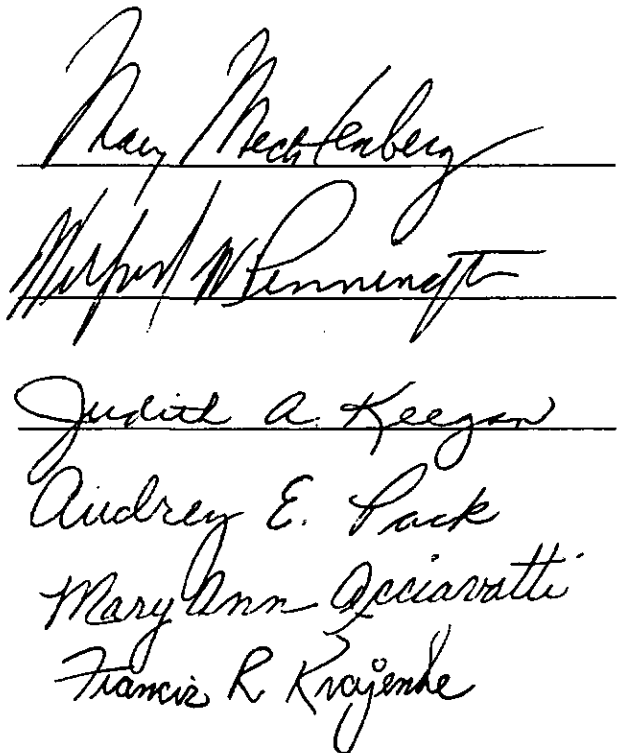 Mary Mechtenberg
W Pennington
Judith A. Keegan
Audrey E. Pack
Mary Ann Acciavatti
Francis R Krajenke